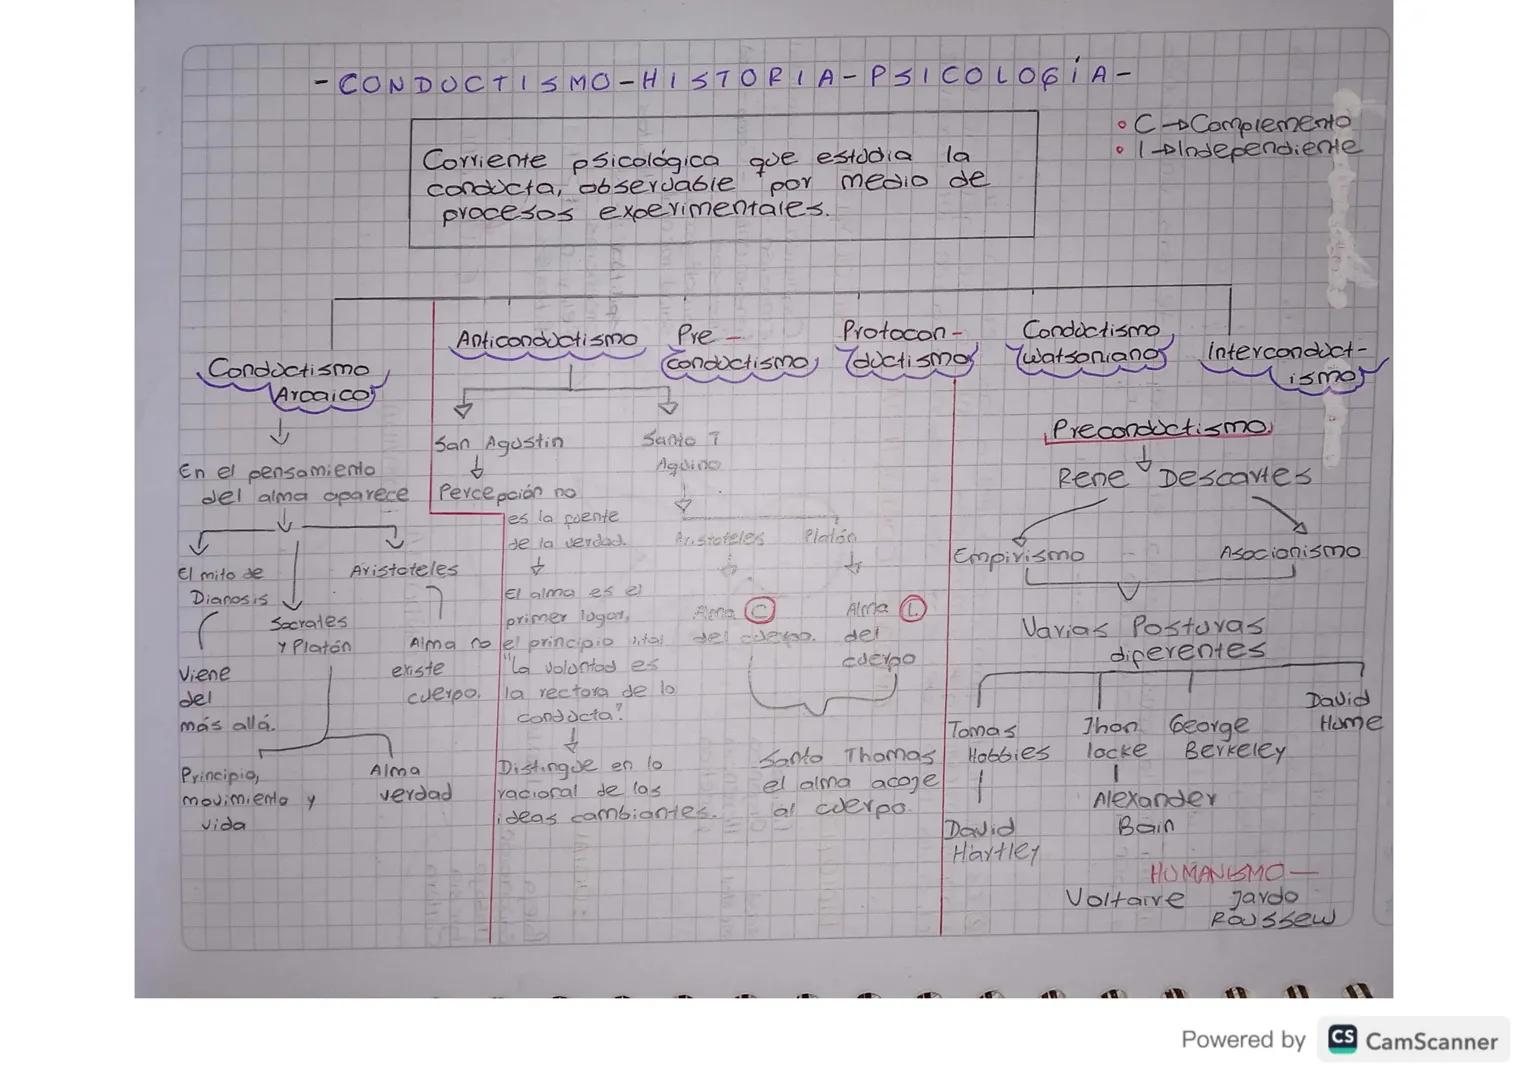 -CONDUCTISMO-HISTORIA-PSICOLOGíA-
• C → Complemento
• I → Independiente
Corriente psicológica que estudia la
conducta, observable por medio de
procesos experimentales.
Conductismo
Arcaico
Anticonductismo
Pre -
conductismo
Protocon-
ductismo
Conductismo
Watsoniano
Interconduct-
ismo
En el pensamiento
del alma aparece
El mito de
Dianosis
Viene
del
más allá.
Socrates
y Platón
Principio,
movimiento y
vida
Alma
verdad
Aristoteles
Alma no
existe
cuerpo.
San Agustin
Percepción no
es la fuente
de la verdad.
El alma es el
primer lugar,
el principio vital
"La voluntad es
la rectora de la
conducta"
Distingue en lo
racional de las
ideas cambiantes.
Santo T
Aquino
Aristoteles
Platón
Alma C
del cuerpo.
Alma I.
del
cuerpo
Santo Thomas
el alma acoje
al cuerpo.
Preconductismo
Rene Descartes
Empirismo
Asocionismo
Varias Posturas
diferentes
Tomas
Hobbies
David
Hartley
Jhon
locke
Alexander
Bain
George
Berkeley
David
Hume
HUMANISMO—
Voltaire
Jardo
Roussew
Powered by CS CamScanner